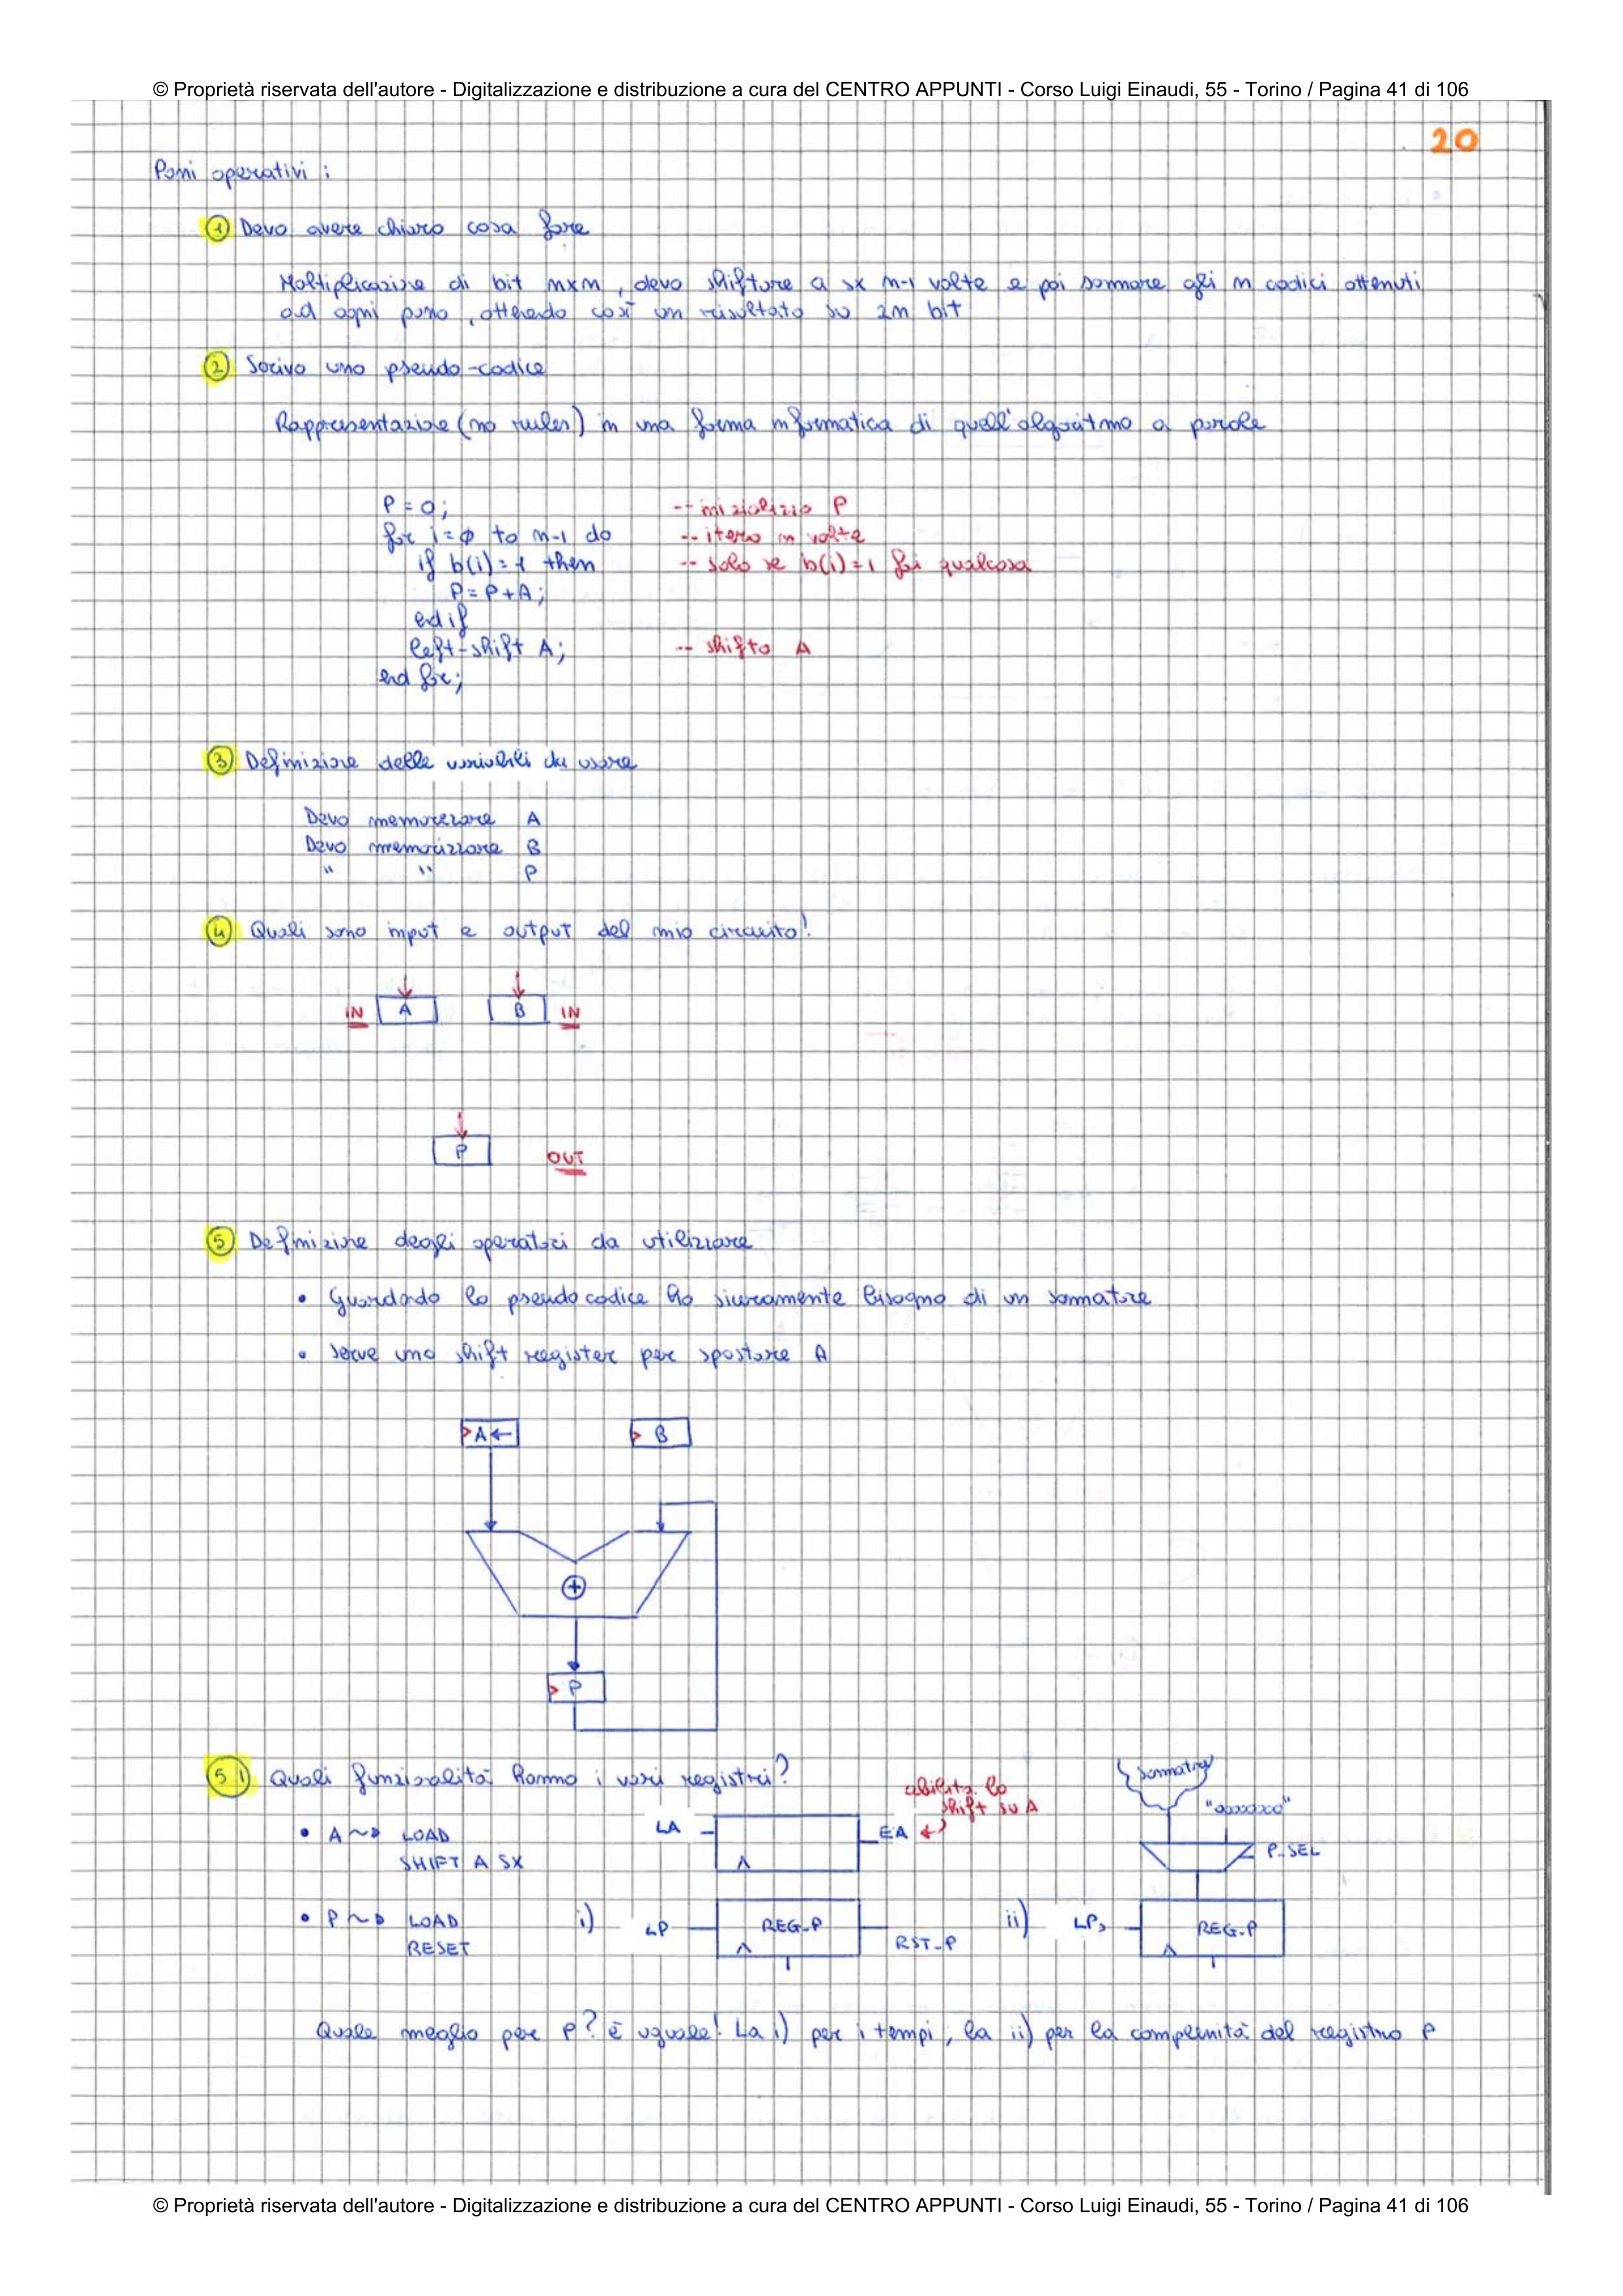 © Proprietà riservata dell'autore - Digitalizzazione e distribuzione a cura del CENTRO APPUNTI - Corso Luigi Einaudi, 55 - Torino / Pagina 41 di 106
20
Passi operativi :
1 Devo avere chiaro cosa fare
Moltiplicazione di bit nxn , devo shiftare a sx n-1 volte e poi sommare gli n codici ottenuti
ad ogni passo , ottenendo così un risultato su 2n bit
2 Scrivo uno pseudo-codice
Rappresentazione (no rules) in una forma informatica di quell'algoritmo a parole
P = 0; -- inizializzo P
for i = φ to n-1 do -- itero n volte
if b(i) = 1 then -- solo se b(i) = 1 fai qualcosa
P = P + A;
end if
left-shift A; -- shifto A
end for;
3 Definizione delle variabili da usare
Devo memorizzare A
Devo memorizzare B
" " P
4 Quali sono input e output del mio circuito!
IN A B IN
P OUT
5 Definizione degli operatori da utilizzare
• Guardando lo pseudocodice ho sicuramente bisogno di un sommatore
• Serve uno shift register per spostare A
A← B
+
P
5.1 Quali funzionalità hanno i vari registri?
abilita lo
shift su A
sommatore
"0000000"
• A ~> LOAD LA EA
SHIFT A SX
P_SEL
• P ~> LOAD i) LP REG_P RST_P ii) LP REG_P
RESET
Quale meglio per P? è uguale! La i) per i tempi, la ii) per la complessità del registro P
© Proprietà riservata dell'autore - Digitalizzazione e distribuzione a cura del CENTRO APPUNTI - Corso Luigi Einaudi, 55 - Torino / Pagina 41 di 106